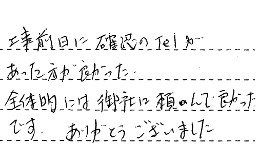 工事前日に確認のTelが
あった方が良かった.
全体的には御社に頼んで良かった
です. ありがとうございました